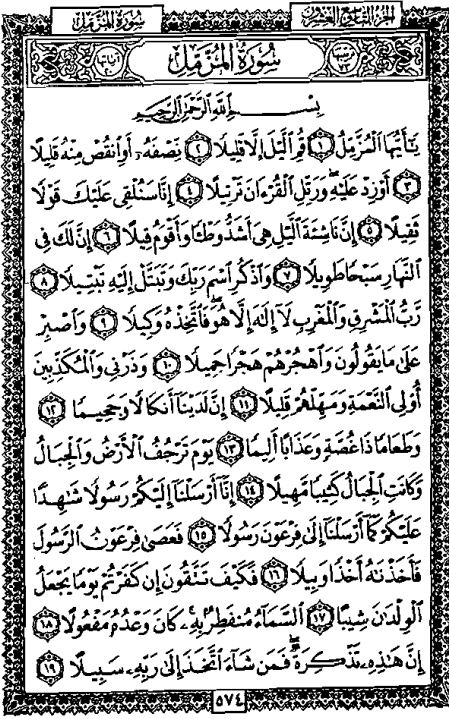 سُورَةُ المُزَّمِّل
الجُزْءُ التَّاسِعُ وَالعِشْرُونَ
سُورَةُ المُزَّمِّلِ
بِسْمِ ٱللَّهِ ٱلرَّحْمَٰنِ ٱلرَّحِيمِ
يَٰٓأَيُّهَا ٱلْمُزَّمِّلُ ١ قُمِ ٱلَّيْلَ إِلَّا قَلِيلًا ٢ نِّصْفَهُۥٓ أَوِ ٱنقُصْ مِنْهُ قَلِيلًا
٣ أَوْ زِدْ عَلَيْهِ وَرَتِّلِ ٱلْقُرْءَانَ تَرْتِيلًا ٤ إِنَّا سَنُلْقِى عَلَيْكَ قَوْلًا
ثَقِيلًا ٥ إِنَّ نَاشِئَةَ ٱلَّيْلِ هِىَ أَشَدُّ وَطْـًٔا وَأَقْوَمُ قِيلًا ٦ إِنَّ لَكَ فِى
ٱلنَّهَارِ سَبْحًا طَوِيلًا ٧ وَٱذْكُرِ ٱسْمَ رَبِّكَ وَتَبَتَّلْ إِلَيْهِ تَبْتِيلًا ٨
رَّبُّ ٱلْمَشْرِقِ وَٱلْمَغْرِبِ لَآ إِلَٰهَ إِلَّا هُوَ فَٱتَّخِذْهُ وَكِيلًا ٩ وَٱصْبِرْ
عَلَىٰ مَا يَقُولُونَ وَٱهْجُرْهُمْ هَجْرًا جَمِيلًا ١٠ وَذَرْنِى وَٱلْمُكَذِّبِينَ
أُو۟لِى ٱلنَّعْمَةِ وَمَهِّلْهُمْ قَلِيلًا ١١ إِنَّ لَدَيْنَآ أَنكَالًا وَجَحِيمًا ١٢
وَطَعَامًا ذَا غُصَّةٍ وَعَذَابًا أَلِيمًا ١٣ يَوْمَ تَرْجُفُ ٱلْأَرْضُ وَٱلْجِبَالُ
وَكَانَتِ ٱلْجِبَالُ كَثِيبًا مَّهِيلًا ١٤ إِنَّآ أَرْسَلْنَآ إِلَيْكُمْ رَسُولًا شَٰهِدًا
عَلَيْكُمْ كَمَآ أَرْسَلْنَآ إِلَىٰ فِرْعَوْنَ رَسُولًا ١٥ فَعَصَىٰ فِرْعَوْنُ ٱلرَّسُولَ
فَأَخَذْنَٰهُ أَخْذًا وَبِيلًا ١٦ فَكَيْفَ تَتَّقُونَ إِن كَفَرْتُمْ يَوْمًا يَجْعَلُ
ٱلْوِلْدَٰنَ شِيبًا ١٧ ٱلسَّمَآءُ مُنفَطِرٌۢ بِهِۦ كَانَ وَعْدُهُۥ مَفْعُولًا ١٨
إِنَّ هَٰذِهِۦ تَذْكِرَةٌ فَمَن شَآءَ ٱتَّخَذَ إِلَىٰ رَبِّهِۦ سَبِيلًا ١٩
٥٧٤